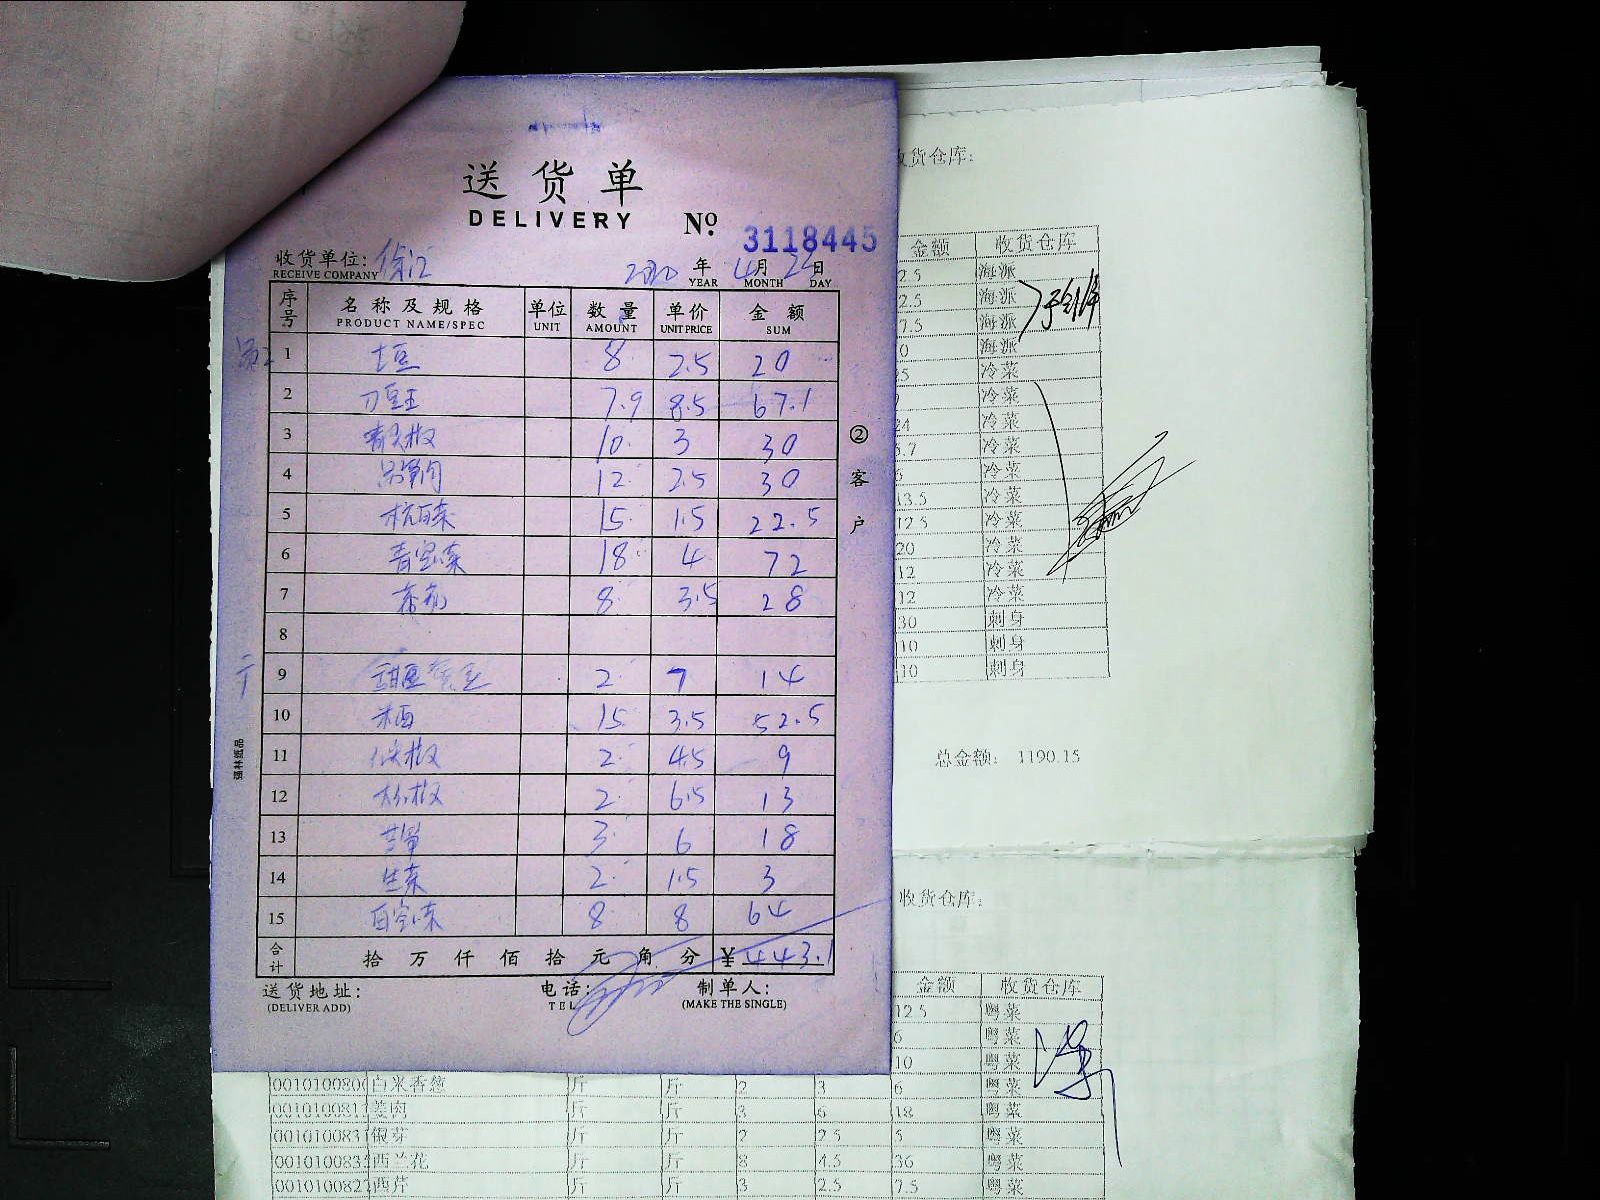 送货单
DELIVERY № 3118445
收货单位: 徐汇
RECEIVE COMPANY
年 4月 22日
YEAR MONTH DAY
序号 名称及规格 单位 数量 单价 金额
PRODUCT NAME/SPEC UNIT AMOUNT UNIT PRICE SUM
1 土豆 8 2.5 20
2 刀豆王 7.9 8.5 67.1
3 青尖椒 10 3 30
4 12 2.5 30
5 杭白菜 15 1.5 22.5
6 青空菜 18 4 72
7 8 3.5 28
8
9 甜豆 2 7 14
10 15 3.5 52.5
11 尖椒 2 4.5 9
12 2 6.5 13
13 3 6 18
14 生菜 2 1.5 3
15 8 8 64
合计 拾 万 仟 佰 拾 元 角 分 ¥443.1
送货地址: 电话: 制单人:
(DELIVER ADD) TEL (MAKE THE SINGLE)
②客户
收货仓库:
金额 收货仓库
2.5 海派
2.5 海派
7.5 海派
0 海派
冷菜
冷菜
24 冷菜
冷菜
冷菜
13.5 冷菜
12.5 冷菜
20 冷菜
12 冷菜
12 冷菜
30 刺身
10 刺身
10 刺身
总金额: 1190.15
收货仓库:
金额 收货仓库
12.5 粤菜
6 粤菜
10 粤菜
白米香葱 斤 斤 2 3 6 粤菜
姜肉 斤 斤 3 6 18 粤菜
银芽 斤 斤 2 2.5 5 粤菜
西兰花 斤 斤 8 4.5 36 粤菜
西芹 斤 斤 3 2.5 7.5 粤菜